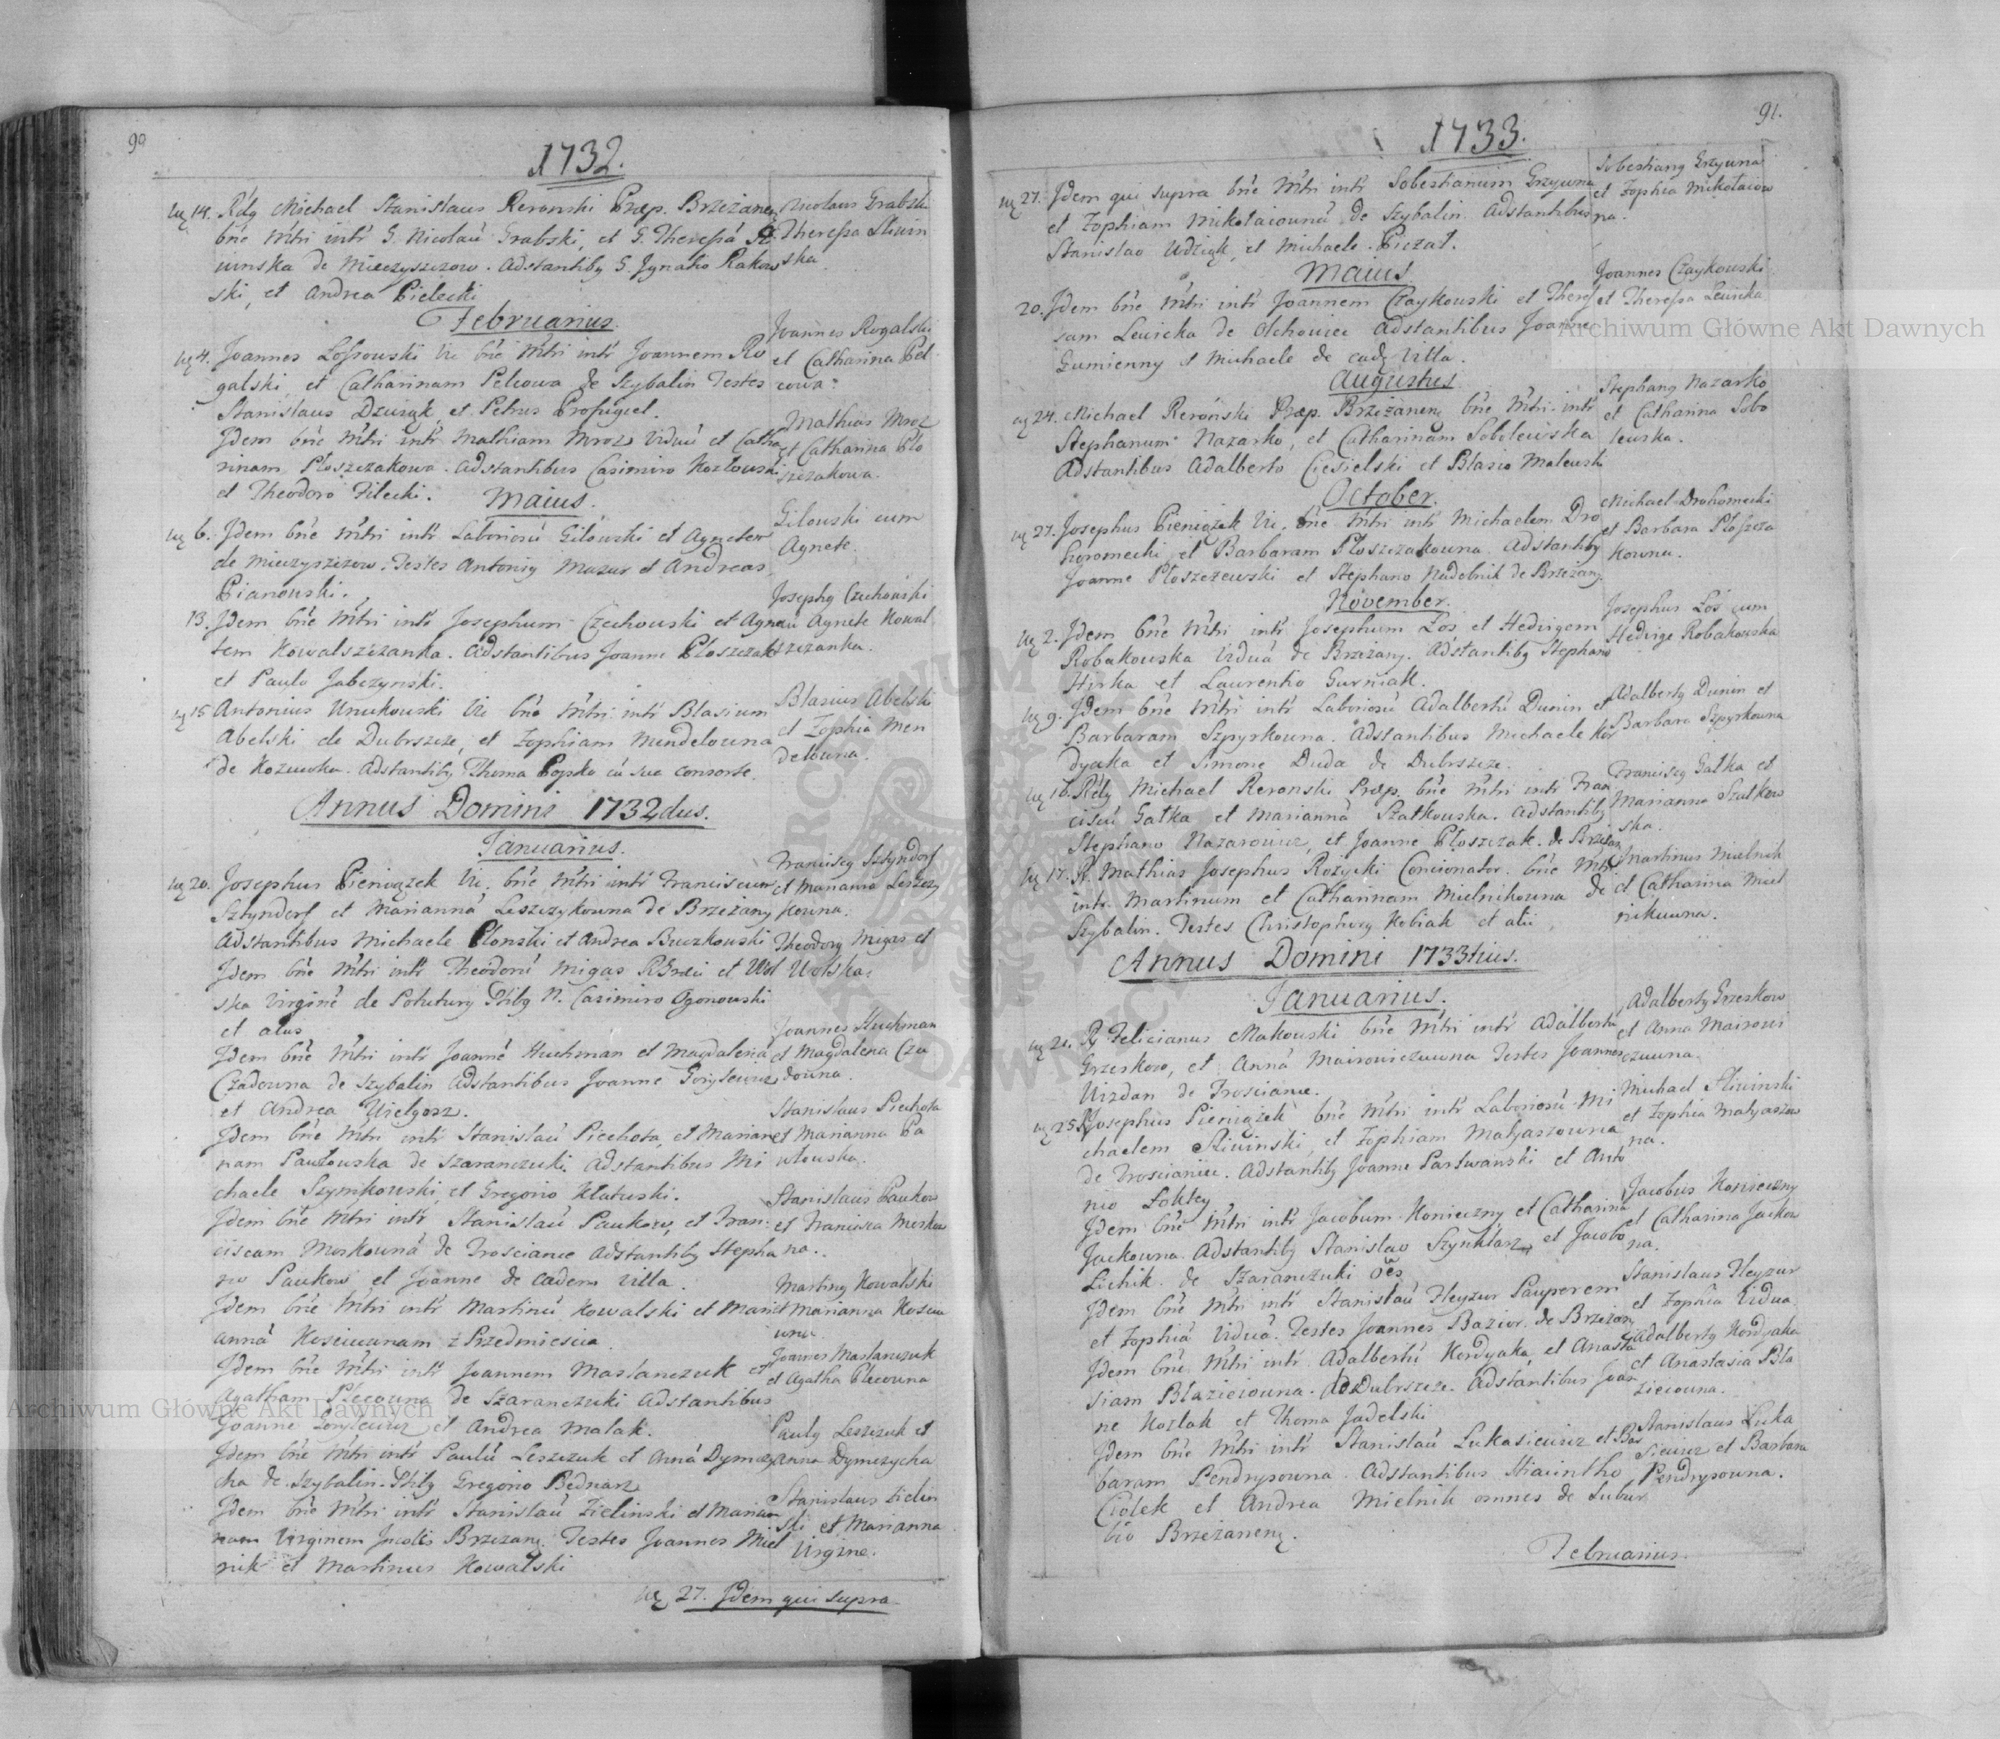 90
1732.
Rdq Michael Stanislaus Reronski Præp. Brzezanen
bn̄e Mtri intr G. Nicolaū Grabski, et G. Theressā Sli
winska de Mieczyszczow. Adstantibq G. Jgnatio Rakow
ski, et Andrea Bielecki
Nicolaus Grabski
Theressa Sliwin
ska
Februarius.
4. Joannes Lossowski Vi: bn̄e Mtri intr Joannem Ro
galski et Catharinam Pelcowa de Szybalin Testes
Stanislaus Dziuząk, et Petrus
Joannes Rogalski
et Catharina Pel
cowa
Jdem bn̄e Mtri intr Mathiam Mroz Viduū et Catha
rinam Płoszczakowa. Adstantibus Casimiro Kozłowski
et Theodoro Filecki.
Mathias Mroz
et Catharina Pło
szczakowa.
Maius.
6. Jdem bn̄e Mtri intr Laboriosū Gilowski et Agnetem
de Mieczyszczow. Testes Antoniq Mazur et Andreas
Pianowski.
Gilowski cum
Agnete.
13. Jdem bn̄e Mtri intr Josephum Czechowski et Agne
tem Kowalszczanka. Adstantibus Joanne Płoszczak
et Paulo Jabczynski.
Josephq Czechowski
cū Agnete Kowal
szczanka.
15 Antonius Vnukowski Vi: bn̄e Mtri intr Blasium
Abelski de Dubrszcze, et Zophiam Mendelowna
de Kozuwka. Adstantibq Thoma Popko cū sua consorte.
Blasius Abelski
et Zophia Men
delowna.
Annus Domini 1732dus.
Januarius.
20. Josephus Pieniązek Vi: bn̄e Mtri intr Franciscum
Sztyndorf et Mariannā Leszczykowna de Brzezany
Adstantibus Michaele Płonski et Andrea Buczkowski
Francisq Sztyndorf
et Marianna Leszczy
kowna.
Jdem bn̄e Mtri intr Theodorū Migas et Wol
ska Virginē de Potutury Ptibq N. Casimiro Ogonowski
et alus
Theodorq Migas et
Wolska.
Jdem bn̄e Mtri intr Joannē Huchman et Magdalenā
Czadowna de Szybalin Adstantibus Joanne Gorylewicz
et Andrea Wielgosz.
Joannes Huchman
et Magdalena Cza
downa.
Jdem bn̄e Mtri intr Stanislaū Piechota, et Marian
nam Pawłowska de Szaranczuki. Adstantibus Mi
chaele Szymkowski, et Gregorio Klatuski.
Stanislaus Piechota
et Marianna Pa
włowska.
Jdem bn̄e Mtri intr Stanislaū Paukow, et Fran:
ciscam Morkownā de Trosciance Adstantibq Stepha
no Paukow et Joanne de eadem villa.
Stanislaus Paukow
et Francisca Morkow
na.
Jdem bn̄e Mtri intr Martinū Kowalski et Mari
annā Kosciwanam z Przedmiescia
Martinq Kowalski
et Marianna Koscиw
Jdem bn̄e Mtri intr Joannem Maslanczuk et
Agatham Plecowna de Szaranczuki Adstantibus
Joanne Gorylewicz et Andrea Malak.
Joannes Maslanczuk
et Agatha Plecowna
Jdem bn̄e Mtri intr Paulū Leszczuk et Annā Dymczy
cha de Szybalin Ptibq Gregorio Bednarz
Paulq Leszczuk et
Anna Dymczycha
Jdem bn̄e Mtri intr Stanislaū Zielinski et Marian
nam Virginem Jncolis Brzezanq. Testes Joannes Miel
nik et Martinus Kowalski
Stanislaus Zielin
ski et Marianna
Virgine.
27. Jdem qui supra
91.
1733.
27. Jdem qui supra bn̄e Mtri intr Sobestianum Grzywna
et Zophiam Mikołaiownā de Szybalin Adstantibus
Stanislao Udziąk, et Michaele Piczał.
Sobestianq Grzywna
et Zophia Mikołaiow
na.
Maius
20. Jdem bn̄e Mtri intr Joannem Czaykowski et Theres
sam Lewicka de Olchowiec Adstantibus Joanne
Gumienny et Michaele de eadq villa.
Joannes Czaykowski
et Theressa Lewicka
Augustus
24. Michael Reroński Præp. Brzezanenq bn̄e Mtri intr
Stephanum Nazarko, et Catharinam Sobolewska
Adstantibus Adalberto Ciesielski et Blasio Malewski
Stephanq Nazarko
et Catharina Sobo
lewska.
October.
27. Josephus Pieniązek Vi: bn̄e Mtri intr Michaelem Dro
horomecki et Barbaram Płoszczakowna. Adstantibq
Joanne Płoszczewski et Stephano Nadolnik de Brzezanq.
Michael Drohomecki
et Barbara Płoszcza
kowna.
November.
2. Jdem bn̄e Mtri intr Josephum Łos et Hedvigem
Robakowska Viduā de Brzezany. Adstantibq Stephano
Hirka et Laurentio Gurniak.
Josephus Łos cum
Hedvige Robakowska
9. Jdem bn̄e Mtri intr Laboriosū Adalbertū Dunin et
Barbaram Szpyrkowna. Adstantibus Michaele Kor
dyaka et Simone Duda de Dubrszcze.
Adalbertq Dunin et
Barbara Szpyrkowna
16. Rdq Michael Reronski Præp. bn̄e Mtri intr Fran
ciscū Gałka et Mariannā Szatkowska. Adstantibq
Stephano Nazarowicz, et Joanne Płoszczak de Brzezan
Franciscq Gałka et
Marianna Szatkow
ska.
17. R. Mathias Josephus Rozycki Concionator bn̄e Mtri
intr Martinum et Catharinam Mielnikowna de
Szybalin. Testes Christophorq Kobiak et alii
Martinus Mielnik
et Catharina Miel
nikuwna.
Annus Domini 1733tius.
Januarius.
21. Rq Felicianus Makowski bn̄e Mtri intr Adalbertū
Grzeskow, et Annā Mairowiczuwna Testes Joannes
Wizdan de Trosciance.
Adalbertq Grzeskow
et Anna Mairowi
czuwna
25. Josephus Pieniązek bn̄e Mtri intr Laboriosū Mi
chaelem Sliwinski, et Zophiam Matyaszowna
de Trosciance. Adstantibq Joanne Partwanski et Anto
nio Łoktey
Michael Sliwinski
et Zophia Matyaszow
na.
Jdem bn̄e Mtri intr Jacobum Konieczny et Catharina
Jackowna. Adstantibq Stanislao Szynklarz, et Jacobo
Lichik de Szaranczuki oēs
Jacobus Konieczny
et Catharina Jackow
na.
Jdem bn̄e Mtri intr Stanislaū Heyzur Pauperem
et Zophiā Viduā. Testes Joannes Bazior de Brzezanq
Stanislaus Heyzur
et Zophia Vidua
Jdem bn̄e Mtri intr Adalbertū Kordyaka, et Anasta
siam Błazieiowna. de Dubrszcze. Adstantibus Joan
ne Kozlak et Thoma Jadelski
Adalbertq Kordyaka
et Anastasia Bła
zieiowna.
Jdem bn̄e Mtri intr Stanislaū Lukasiewicz et Bar
baram Pendrysowna. Adstantibus Hiacintho
Ciołek et Andrea Mielnik omnes de Subur
bio Brzezanenq.
Stanislaus Luka
siewicz et Barbara
Pendrysowna.
Februarius.
Archiwum Główne Akt Dawnych
Archiwum Główne Akt Dawnych